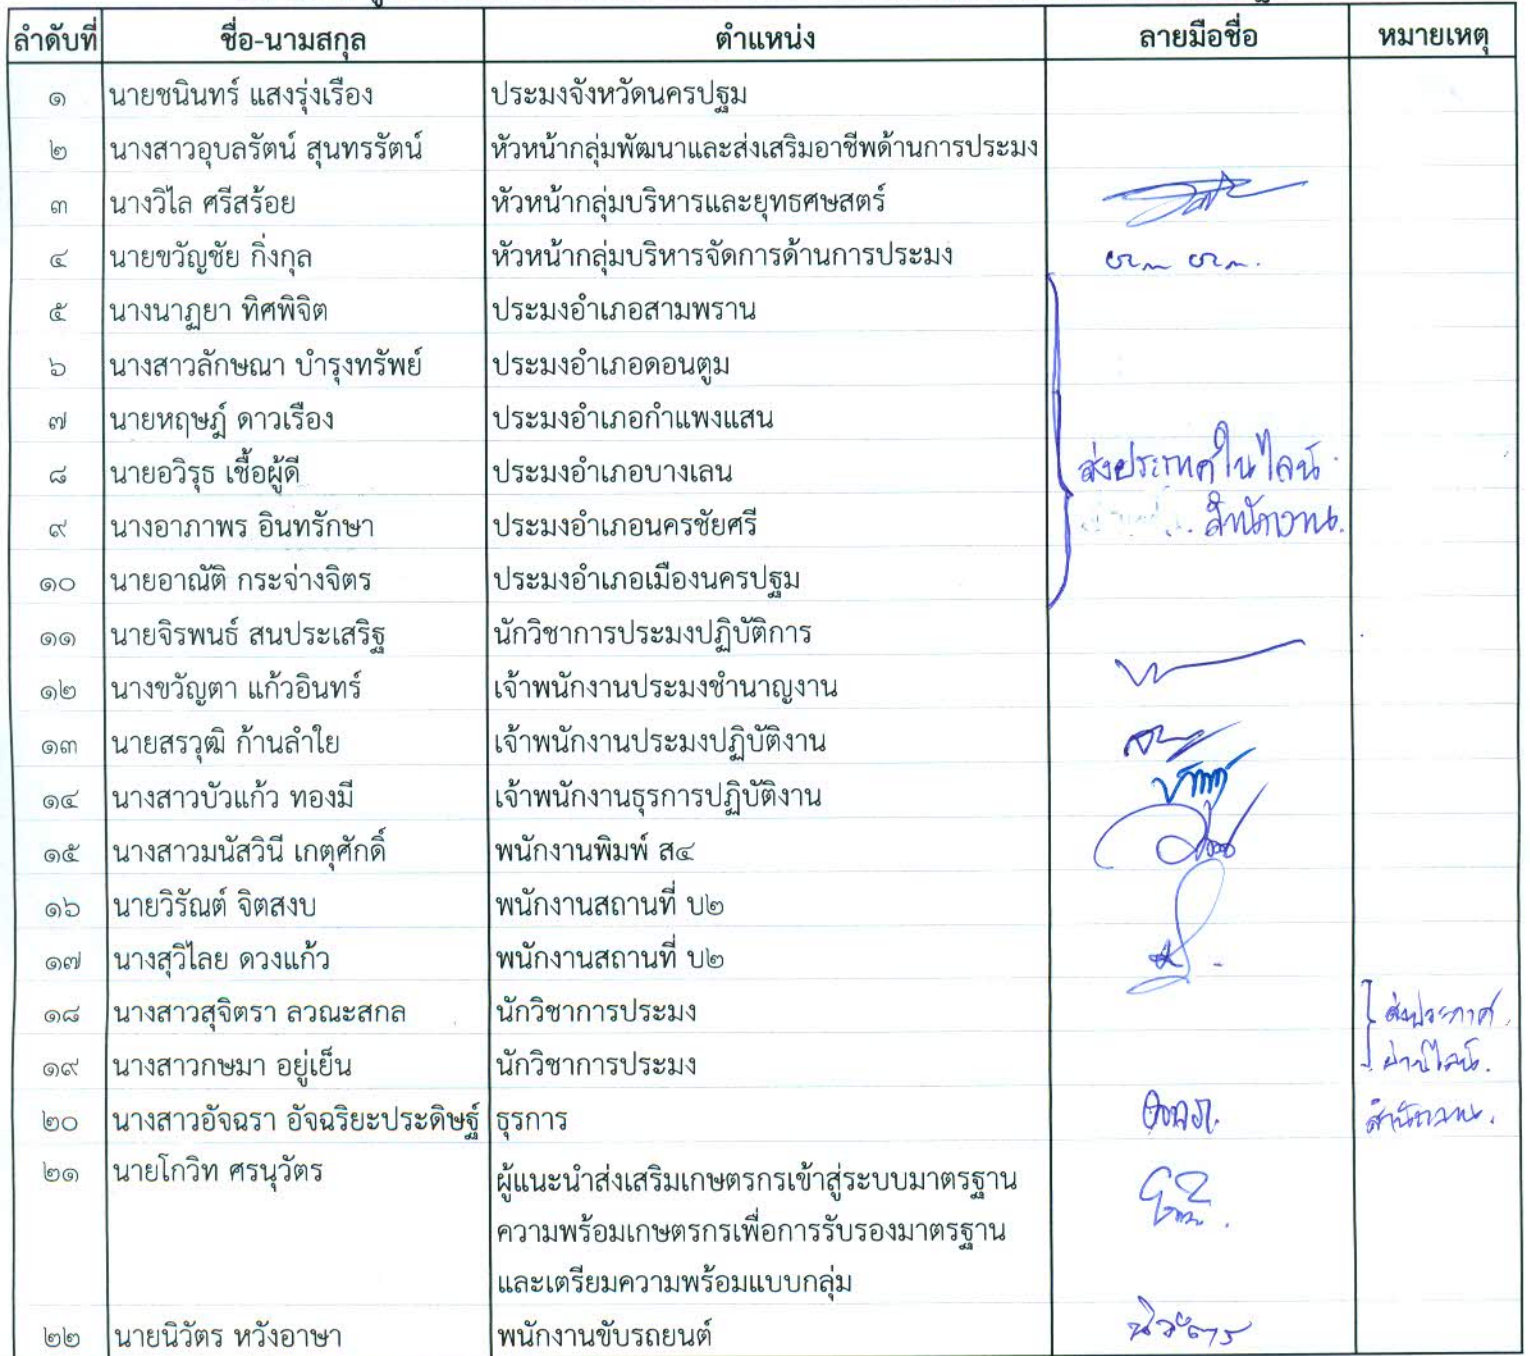 ลำดับที่ ชื่อ-นามสกุล ตำแหน่ง ลายมือชื่อ หมายเหตุ
๑ นายชนินทร์ แสงรุ่งเรือง ประมงจังหวัดนครปฐม
๒ นางสาวอุบลรัตน์ สุนทรรัตน์ หัวหน้ากลุ่มพัฒนาและส่งเสริมอาชีพด้านการประมง
๓ นางวิไล ศรีสร้อย หัวหน้ากลุ่มบริหารและยุทธศษสตร์
๔ นายขวัญชัย กิ่งกุล หัวหน้ากลุ่มบริหารจัดการด้านการประมง
๕ นางนาฏยา ทิศพิจิต ประมงอำเภอสามพราน
๖ นางสาวลักษณา บำรุงทรัพย์ ประมงอำเภอดอนตูม
๗ นายหฤษฎ์ ดาวเรือง ประมงอำเภอกำแพงแสน
๘ นายอวิรุธ เชื้อผู้ดี ประมงอำเภอบางเลน ส่งประกาศในไลน์
๙ นางอาภาพร อินทรักษา ประมงอำเภอนครชัยศรี สำนักงาน.
๑๐ นายอาณัติ กระจ่างจิตร ประมงอำเภอเมืองนครปฐม
๑๑ นายจิรพนธ์ สนประเสริฐ นักวิชาการประมงปฏิบัติการ
๑๒ นางขวัญตา แก้วอินทร์ เจ้าพนักงานประมงชำนาญงาน
๑๓ นายสรวุฒิ ก้านลำใย เจ้าพนักงานประมงปฏิบัติงาน
๑๔ นางสาวบัวแก้ว ทองมี เจ้าพนักงานธุรการปฏิบัติงาน
๑๕ นางสาวมนัสวินี เกตุศักดิ์ พนักงานพิมพ์ ส๔
๑๖ นายวิรัณต์ จิตสงบ พนักงานสถานที่ บ๒
๑๗ นางสุวิไลย ดวงแก้ว พนักงานสถานที่ บ๒
๑๘ นางสาวสุจิตรา ลวณะสกล นักวิชาการประมง ส่งประกาศ
๑๙ นางสาวกษมา อยู่เย็น นักวิชาการประมง ผ่านไลน์.
๒๐ นางสาวอัจฉรา อัจฉริยะประดิษฐ์ ธุรการ สำนักงาน.
๒๑ นายโกวิท ศรนุวัตร ผู้แนะนำส่งเสริมเกษตรกรเข้าสู่ระบบมาตรฐาน
ความพร้อมเกษตรกรเพื่อการรับรองมาตรฐาน
และเตรียมความพร้อมแบบกลุ่ม
๒๒ นายนิวัตร หวังอาษา พนักงานขับรถยนต์ นิวัตร